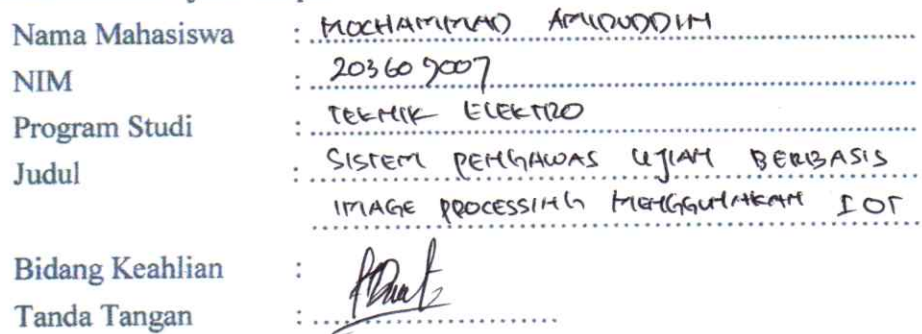 Nama Mahasiswa : MOCHAMMAD AMIRUDDIN
NIM : 203609007
Program Studi : TEKNIK ELEKTRO
Judul : SISTEM PENGAWAS UJIAN BERBASIS
IMAGE PROCESSING MENGGUNAKAN IOT
Bidang Keahlian :
Tanda Tangan :